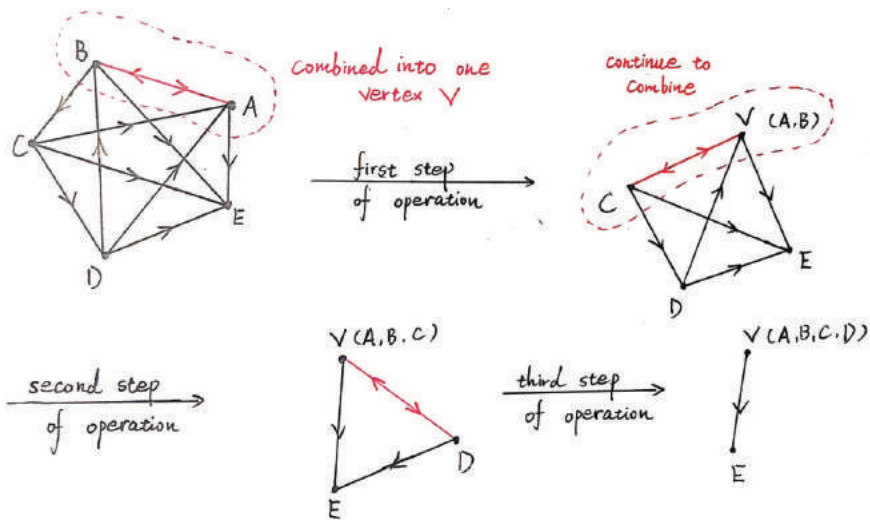 B
A
C
D
E
Combined into one
vertex V
first step
of operation
continue to
combine
V (A,B)
C
D
E
second step
of operation
V (A, B, C)
D
E
third step
of operation
V (A, B, C, D)
E